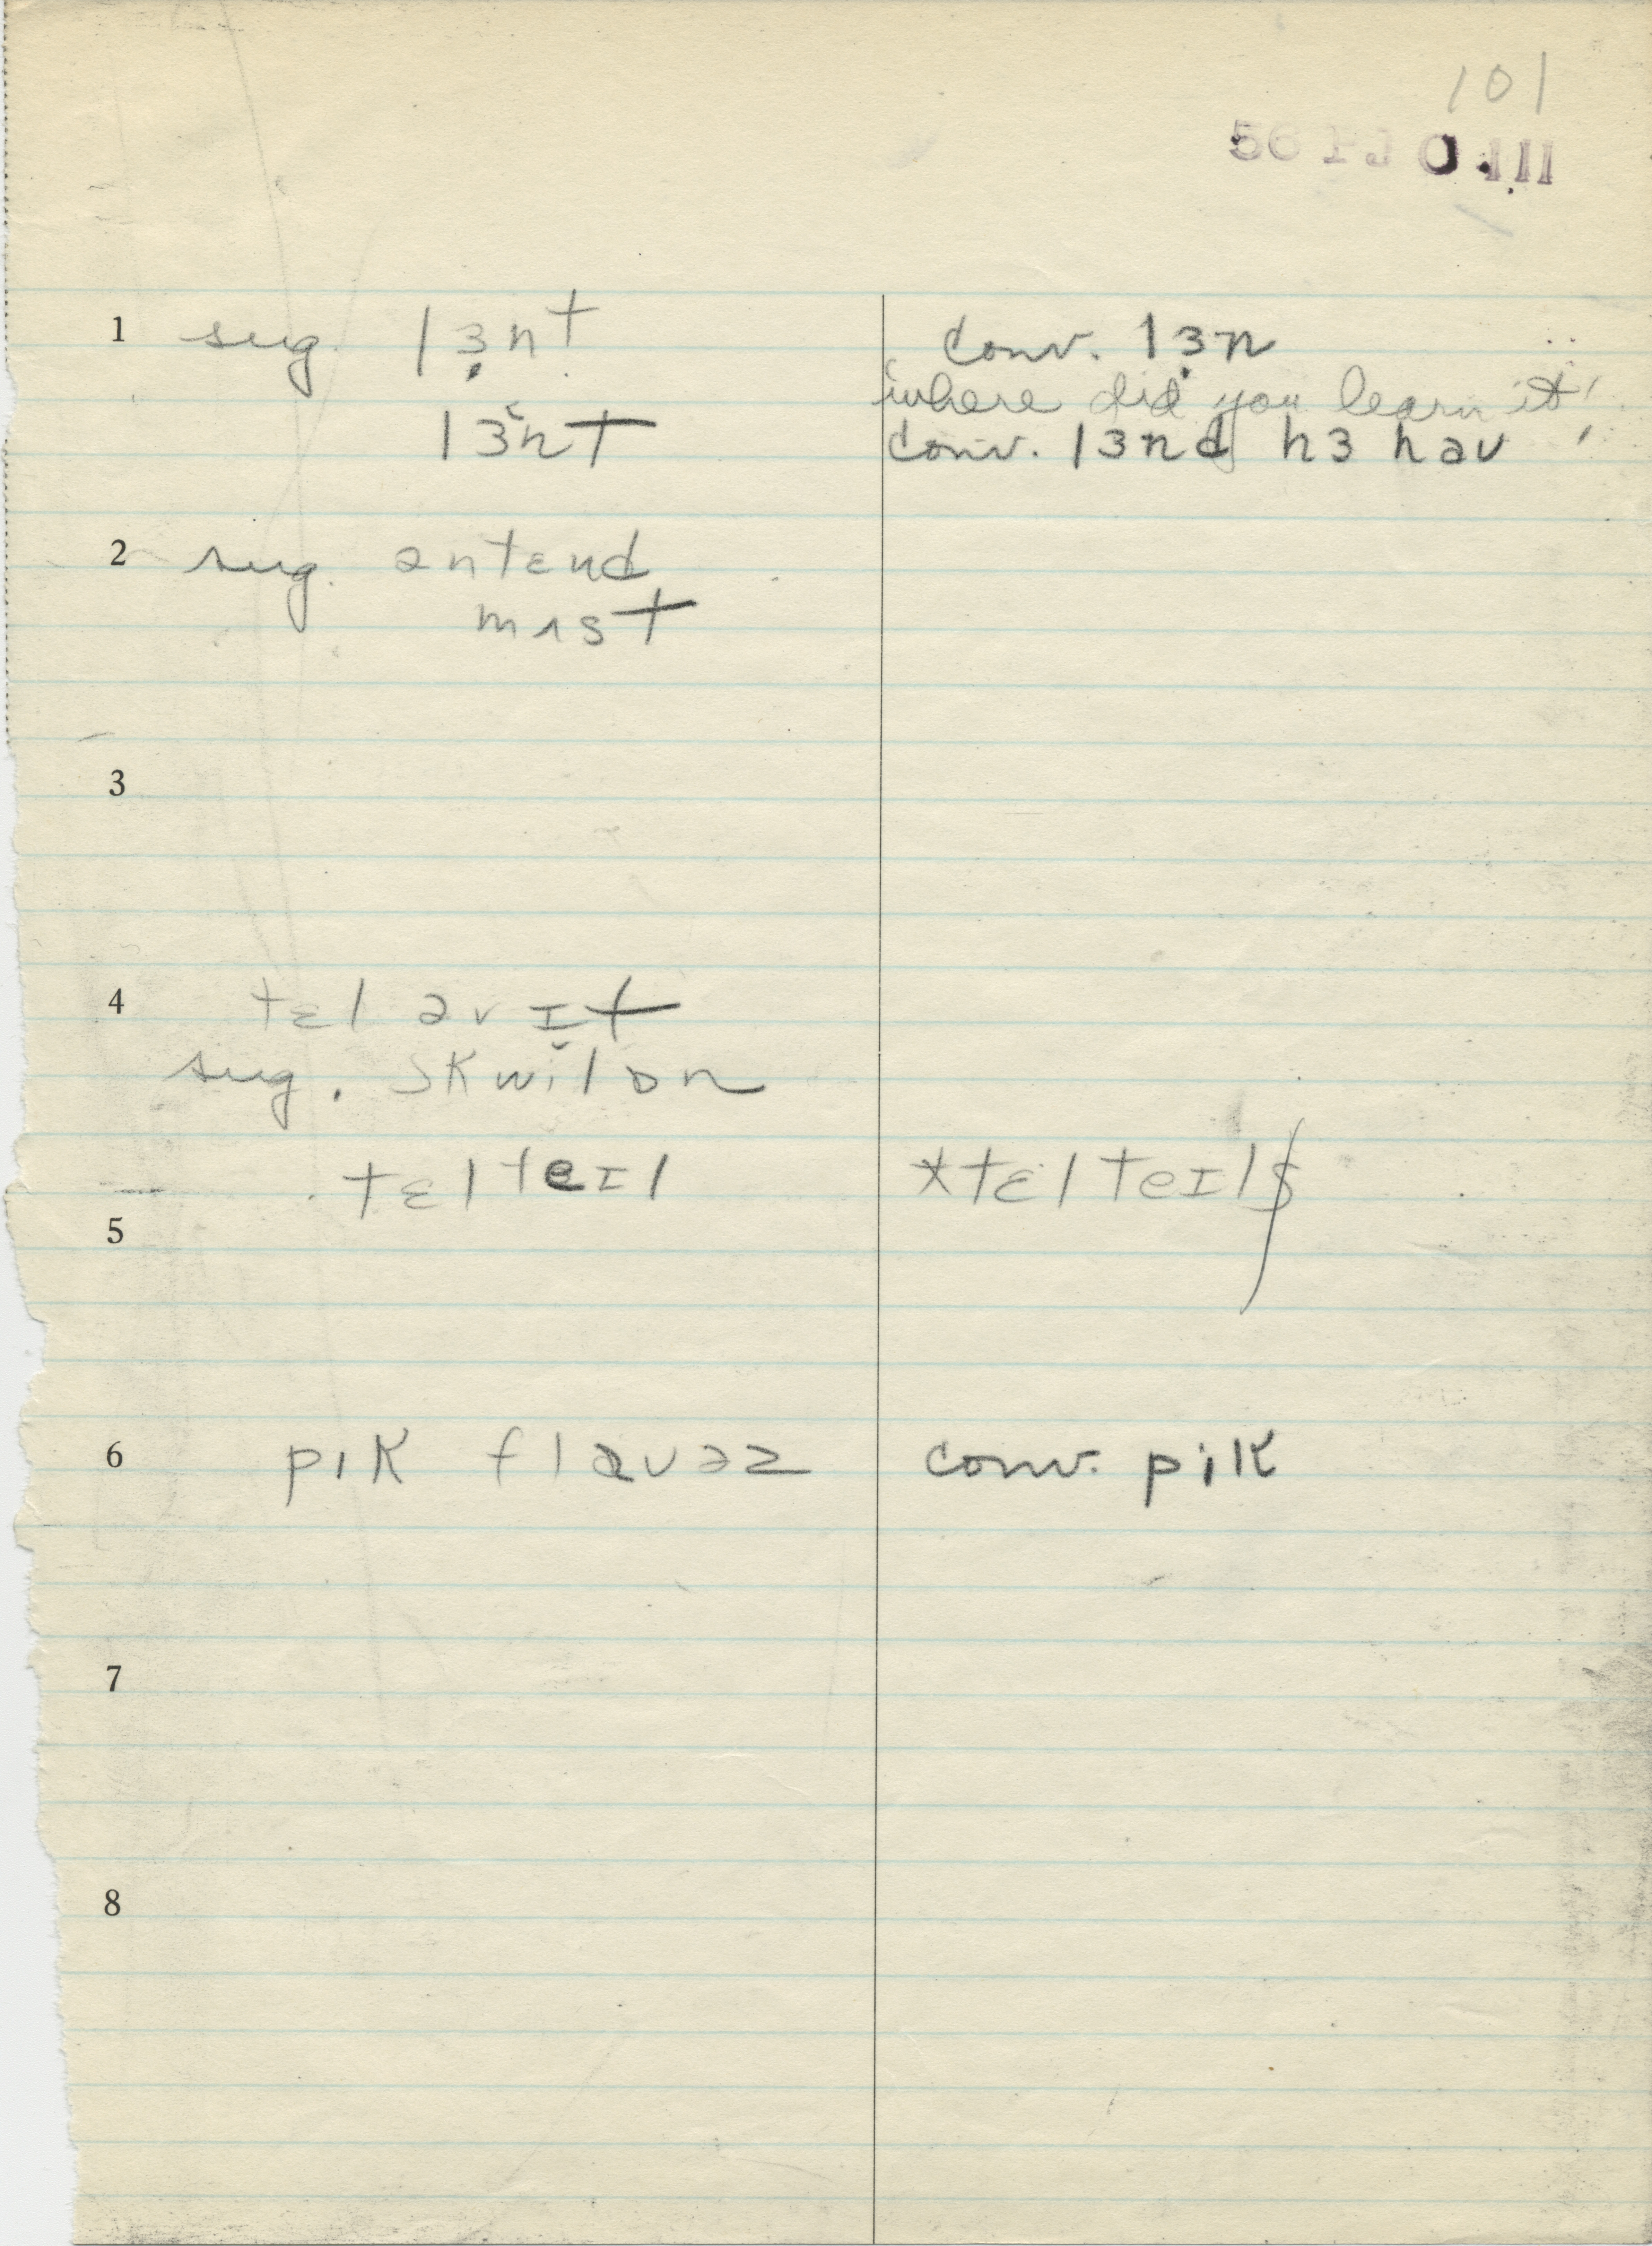 101
1 sug. lɜ̣nt conv. lɜ̣n
where did you learn it!
lɜ̌nt conv. lɜnd hɜ hav
2 sug. əntɛnd
mʌst
3
4 tɛl əv ɪt
sug. skwɪ̌lɒn
tɛlteɪl *tɛlteɪlʃ
5
6 pɪk flaʊəz conv. pɪk
7
8